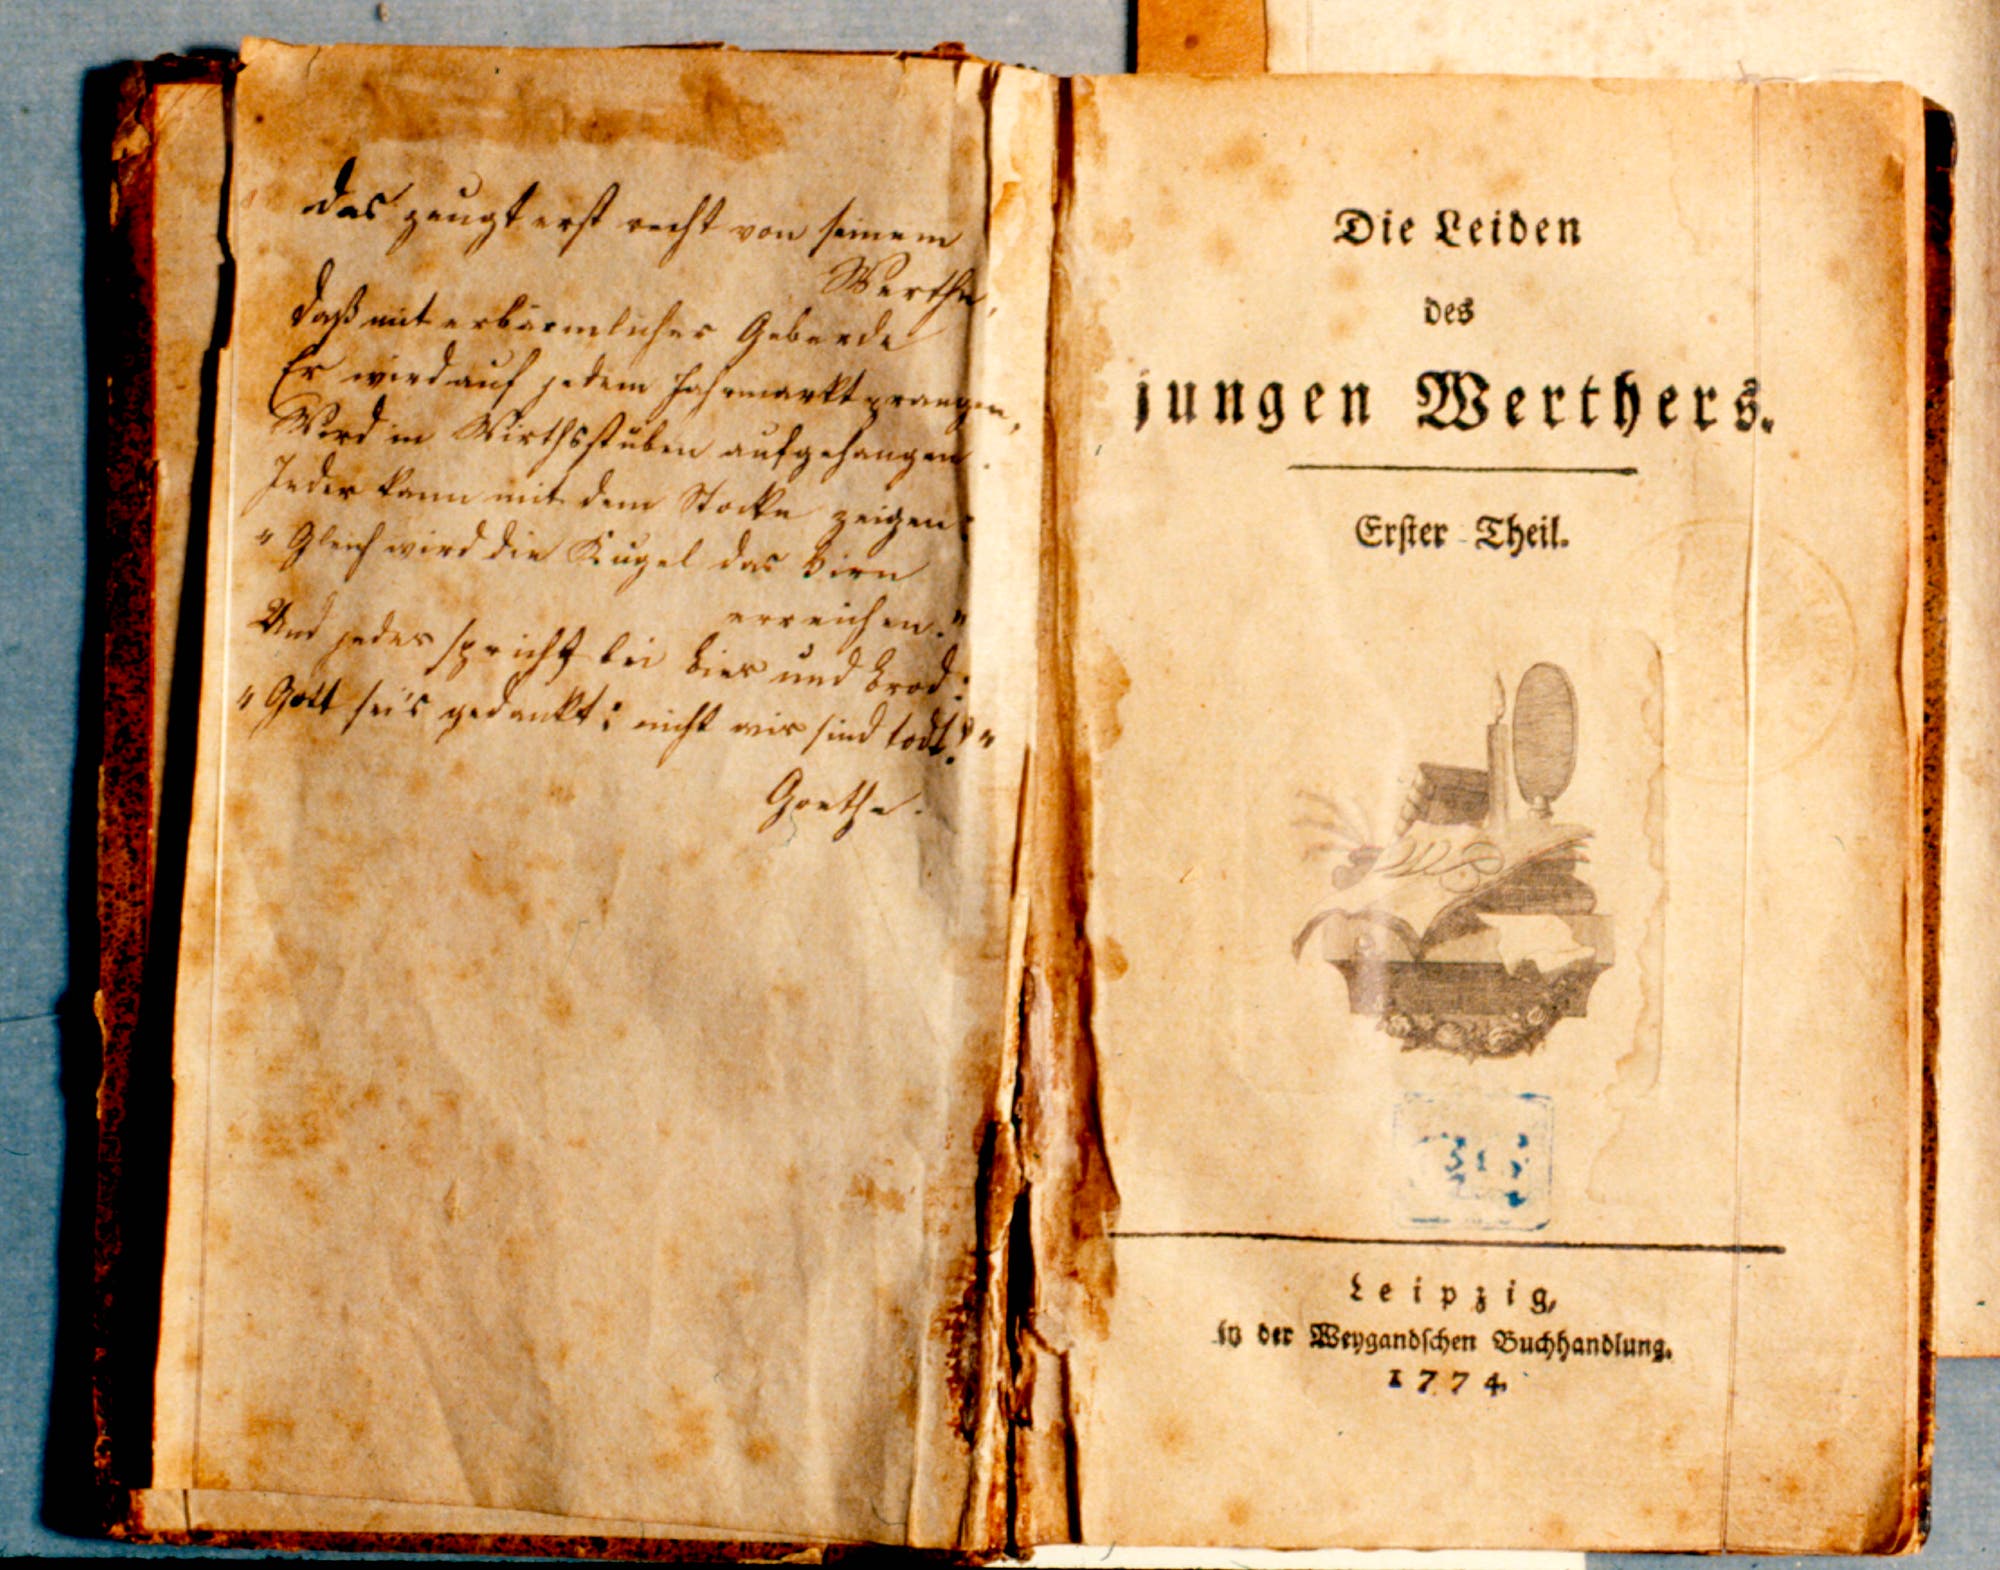 Das zeugt erst recht von seinem
Werthe,
Daß mit erbärmlicher Geberde
Er wird auf jedem Jahrmarkt prangen,
Wird in Wirthsstuben aufgehangen.
Jeder kann mit dem Stocke zeigen:
"Gleich wird die Kugel das Hirn
erreichen."
Und jeder spricht bei Bier und Brod:
"Gott sei's gedankt: nicht wir sind todt!"
Goethe.
Die Leiden
des
jungen Werthers.
Erster Theil.
Leipzig,
in der Weygandschen Buchhandlung.
1774.